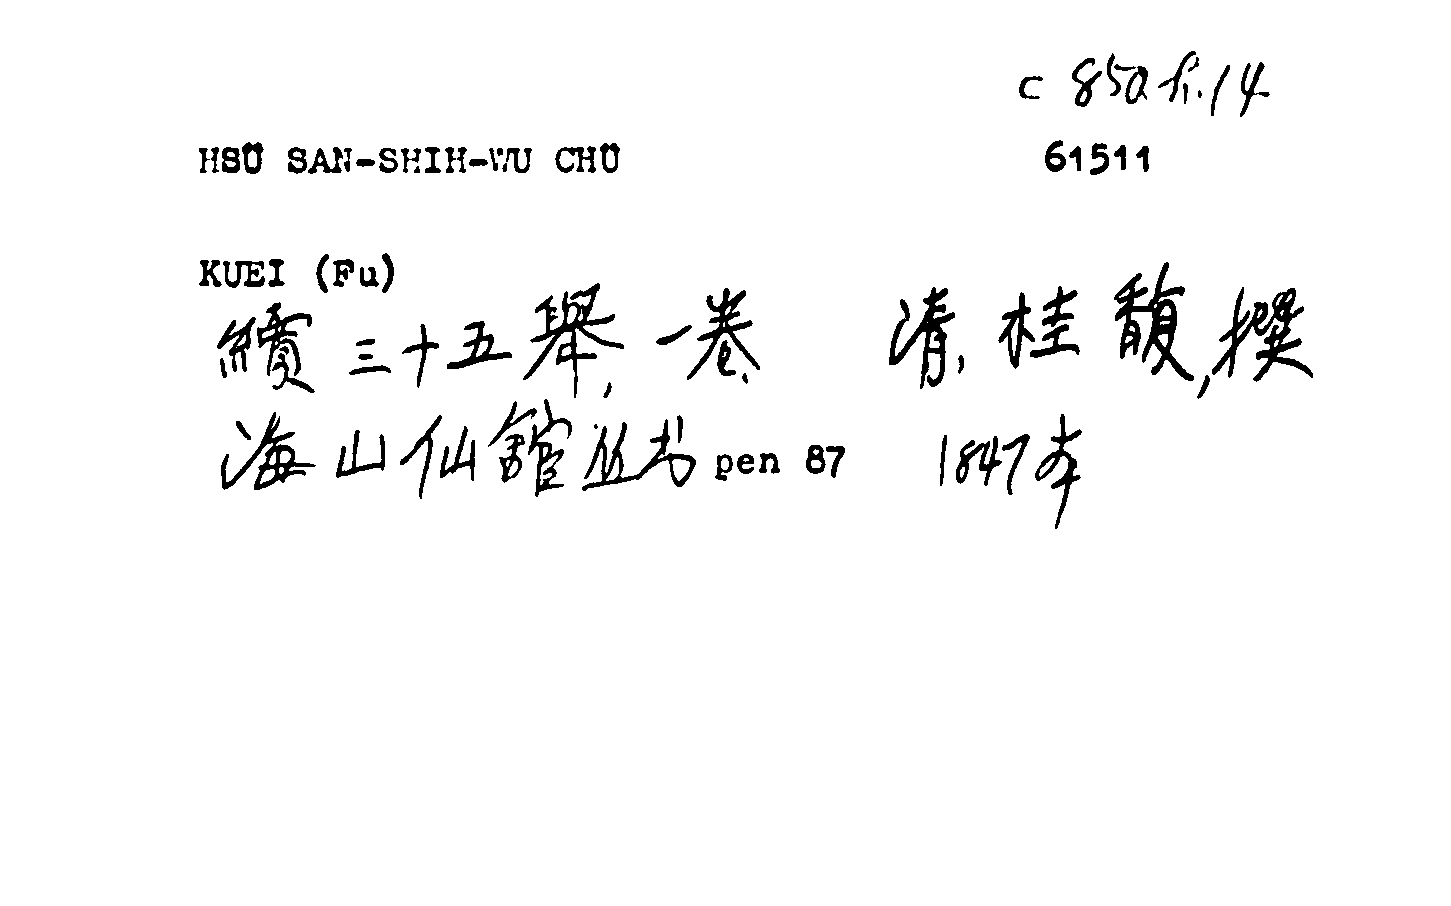 c 850 h.14
HSÜ SAN-SHIH-WU CHÜ 61511
KUEI (Fu)
續三十五舉, 一卷. 清, 桂馥, 撰
海山仙館丛书 pen 87 1847本